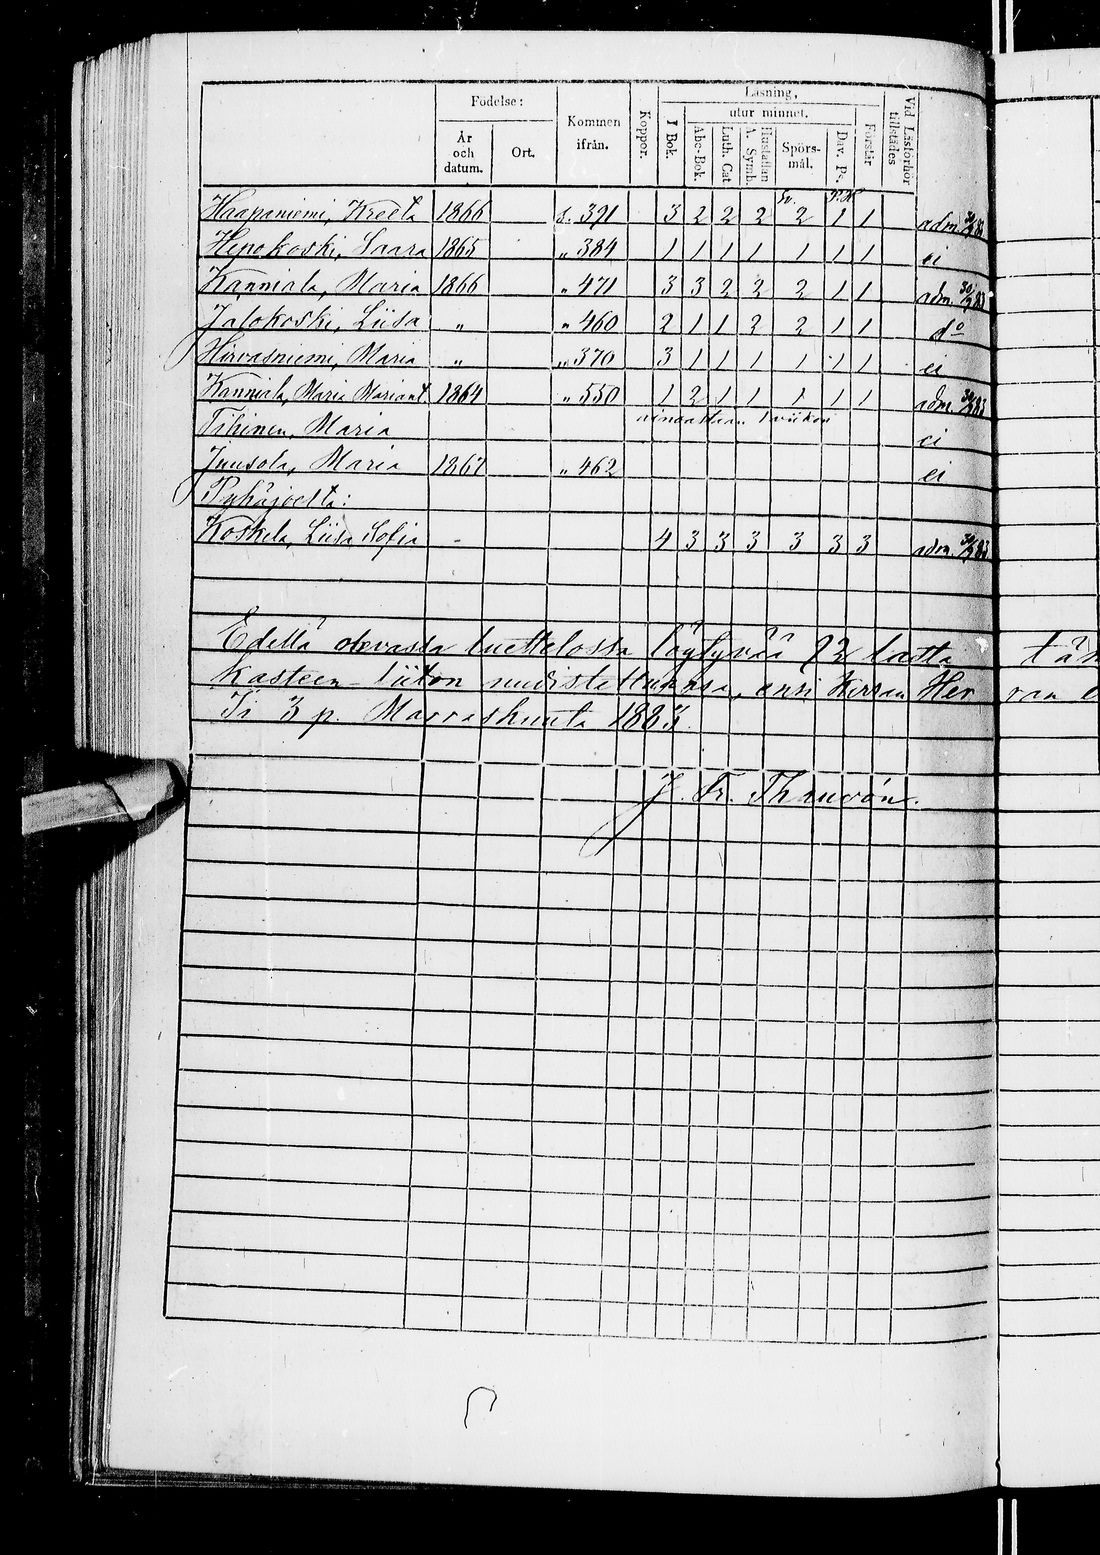 Födelse: Läsning,
Kommen ifrån. Koppor. I Bok. utur minnet. Förstår Vid Läsförhör tillstädes
År och datum. Ort. Abc-Bok. Luth. Cat. Hustaflan A. Symb. Spörsmål. Dav. Ps.
Haapaniemi, Kreeta 1866 s. 391 3 2 2 2 2 1 1 adm. 30/9 83
Hepokoski, Saara 1865 „ 384 1 1 1 1 1 1 1 ei
Kanniala, Maria 1866 „ 471 3 3 2 2 2 1 1 adm. 30/9 83
Jalokoski, Liisa „ „ 460 2 1 1 2 2 1 1 do
Hirvasniemi, Maria „ „ 370 3 1 1 1 1 1 1 ei
Kanniala, Maria Mariant. 1864 „ 550 1 2 1 1 1 1 1 adm. 30/9 83
Tihinen, Maria ainoastaan 1 viikon ei
Juusola, Maria 1867 „ 462 ei
Pyhäjoelta:
Koskela, Liisa Sofia - 4 3 3 3 3 3 3 adm. 30/9 83
Edellä olevassa luettelossa löytyvää lasta
Kasteen liiton uudistettuansa, ensi kerran Her ran
Ti 3 p. Marraskuuta 1883.
J. Fr. Thauvón.